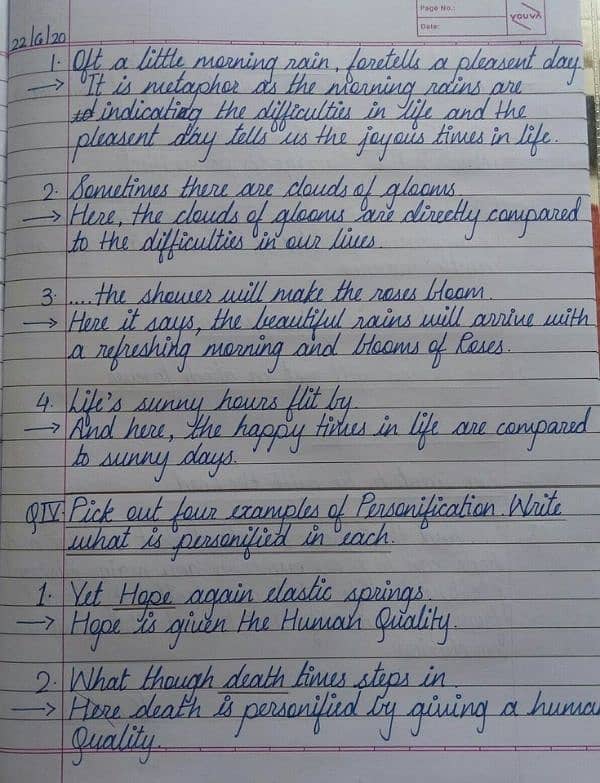 Page No.:
Date:
YOUVA
22/6/20
1. Oft a little morning rain, foretells a pleasent day
→ It is metaphor as the morning rains are
indicating the difficulties in life and the
pleasent day tells us the joyous times in life.
2. Sometimes there are clouds of glooms.
→ Here, the clouds of glooms are directly compared
to the difficulties in our lives.
3. ....the shower will make the roses bloom.
→ Here it says, the beautiful rains will arrive with
a refreshing morning and blooms of Roses.
4. Life's sunny hours flit by.
→ And here, the happy times in life are compared
to sunny days.
QIV. Pick out four examples of Personification. Write
what is personified in each.
1. Yet Hope again elastic springs.
→ Hope is given the Human Quality.
2. What though death times steps in.
→ Here death is personified by giving a huma
Quality.